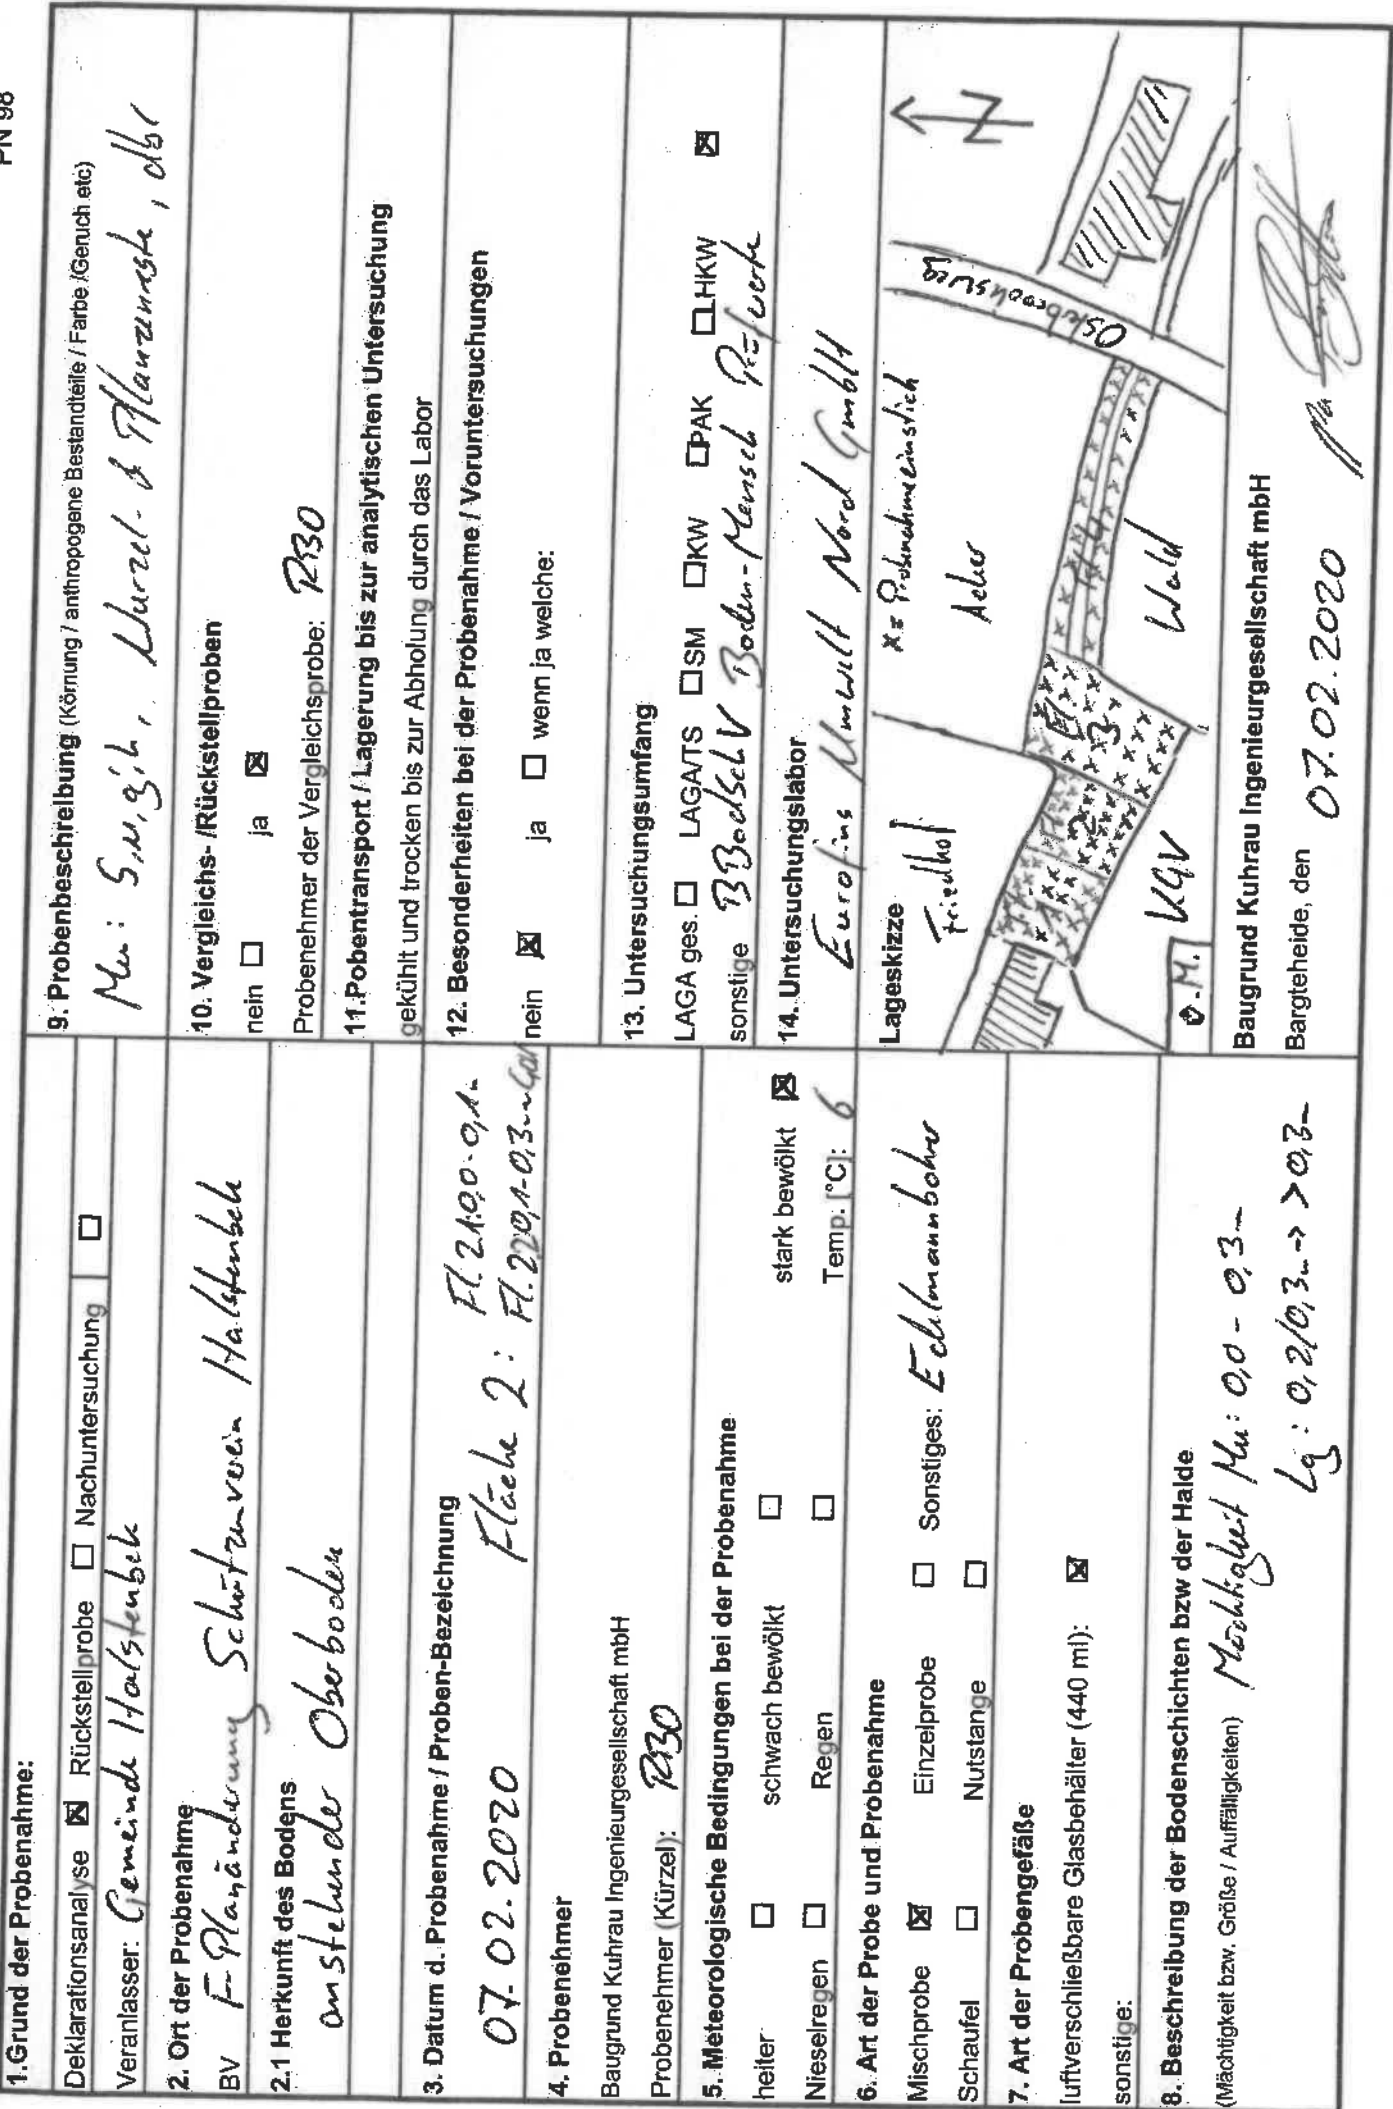 PN 98
1.Grund der Probenahme:
Deklarationsanalyse ☒ Rückstellprobe ☐ Nachuntersuchung ☐
Veranlasser: Gemeinde Halstenbek
2. Ort der Probenahme
BV F-Planänderung Schützenverein Halstenbek
2.1 Herkunft des Bodens
anstehender Oberboden
3. Datum d. Probenahme / Proben-Bezeichnung
07.02.2020 Fläche 2: Fl. 2.1: 0,0-0,1m
Fl. 2.2: 0,1-0,3m
4. Probenehmer
Baugrund Kuhrau Ingenieurgesellschaft mbH
Probenehmer (Kürzel):
5. Meteorologische Bedingungen bei der Probenahme
heiter ☐ schwach bewölkt ☐ stark bewölkt ☒
Nieselregen ☐ Regen ☐ Temp. [°C]: 6
6. Art der Probe und Probenahme
Mischprobe ☒ Einzelprobe ☐ Sonstiges: Edelmannbohrer
Schaufel ☐ Nutstange ☐
7. Art der Probengefäße
luftverschließbare Glasbehälter (440 ml): ☒
sonstige:
8. Beschreibung der Bodenschichten bzw der Halde
(Mächtigkeit bzw. Größe / Auffälligkeiten) Mächtigkeit Mu: 0,0 - 0,3m
Lg: 0,2/0,3m -> >0,3m
9. Probenbeschreibung (Körnung / anthropogene Bestandteile / Farbe /Geruch etc)
Mu: S, u, g', h, Wurzel- & Pflanzenreste, dbr
10. Vergleichs- /Rückstellproben
nein ☐ ja ☒
Probenehmer der Vergleichsprobe:
11.Pobentransport / Lagerung bis zur analytischen Untersuchung
gekühlt und trocken bis zur Abholung durch das Labor
12. Besonderheiten bei der Probenahme / Voruntersuchungen
nein ☒ ja ☐ wenn ja welche:
13. Untersuchungsumfang
LAGA ges. ☐ LAGA/TS ☐SM ☐KW ☐PAK ☐LHKW ☒
sonstige BBodSchV Boden-Mensch Prüfwerte
14. Untersuchungslabor
Eurofins Umwelt Nord GmbH
Lageskizze
x = Probenahmeeinstich
N
Friedhof
Acker
Osterbrooksweg
1 2 3 4
KGV
Wald
o.M.
Baugrund Kuhrau Ingenieurgesellschaft mbH
Bargteheide, den 07.02.2020